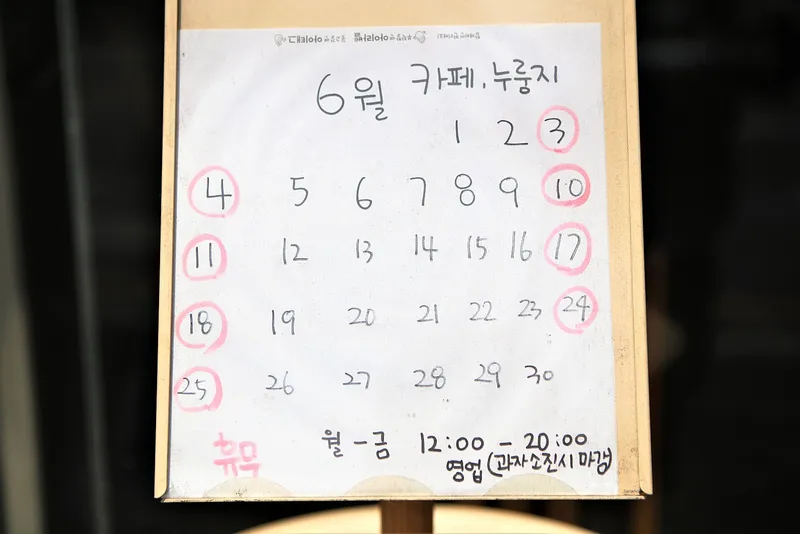 6월 카페, 누룽지
1 2 3
4 5 6 7 8 9 10
11 12 13 14 15 16 17
18 19 20 21 22 23 24
25 26 27 28 29 30
휴무 월-금 12:00 - 20:00
영업 (과자소진시 마감)